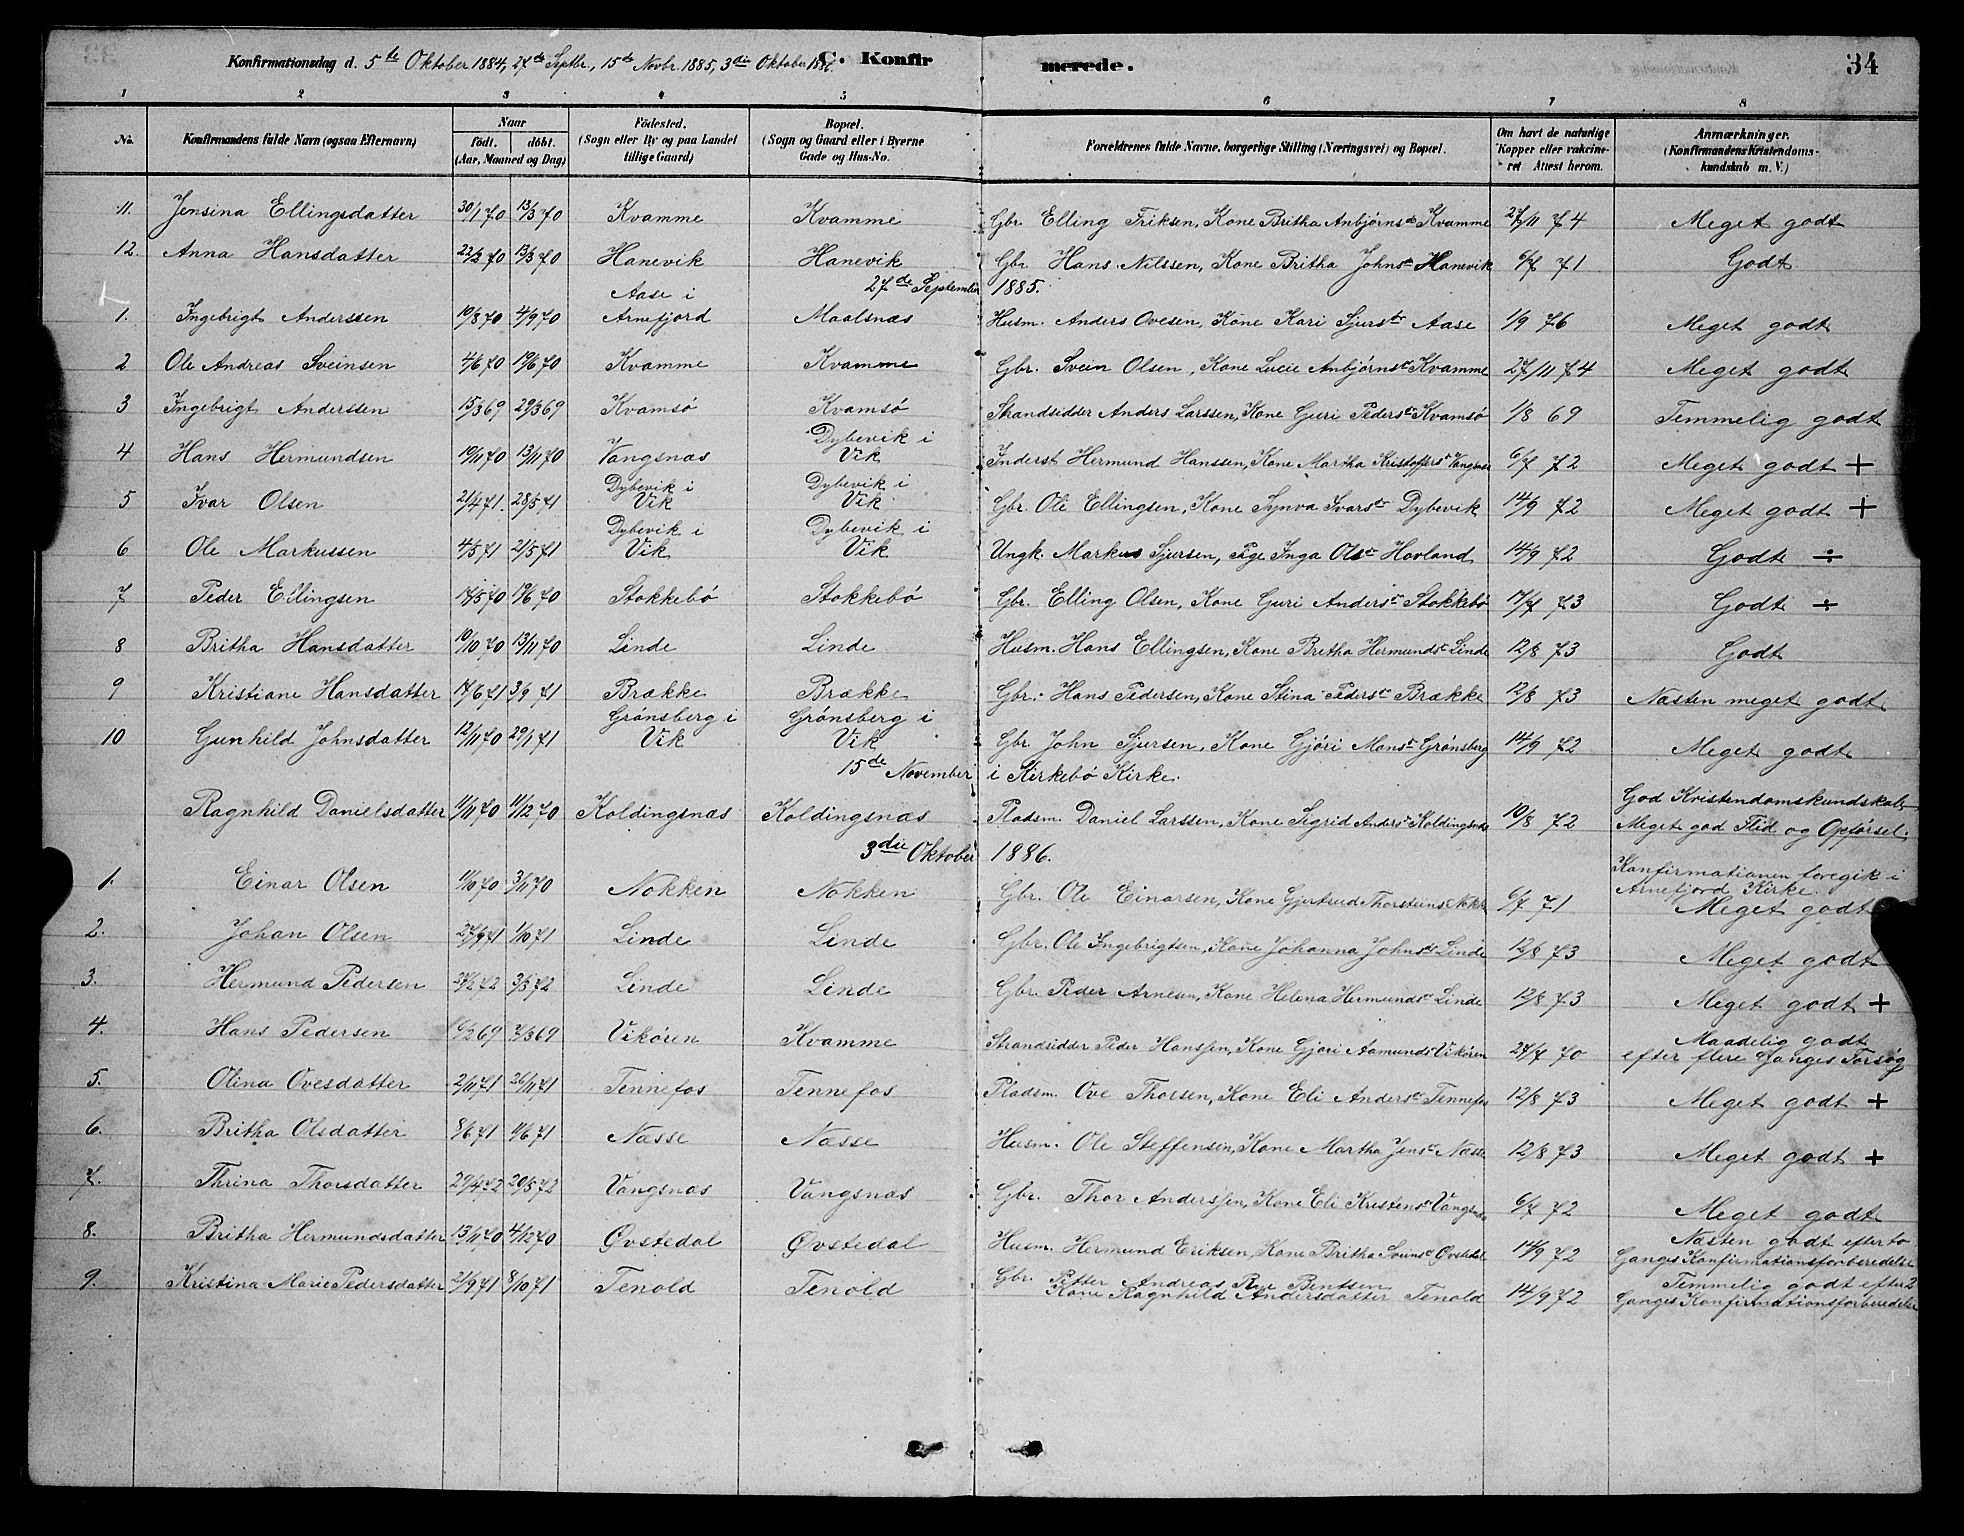 Konfirmationsdag d. 5te Oktober 1884, 27de Septbr., 15de Novbr. 1885, 3die Oktober 1886. C. Konfirmerede. 34
1 2 3 4 5 6 7 8
No. Konfirmandens fulde Navn (ogsaa Efternavn) Naar født. døbt. (Aar, Maaned og Dag) Fødested. (Sogn eller By og paa Landet tillige Gaard) Bopæl. (Sogn og Gaard eller i Byerne Gade og Hus-No. Forældrenes fulde Navne, borgerlige Stilling (Næringsvei) og Bopæl. Om havt de naturlige Kopper eller vakcineret Attest herom. Anmærkninger. (Konfirmandens Kristendomskundskab m. V.)
11. Jensina Ellingsdatter 30/1 70 13/3 70 Kvamme Kvamme Gbr. Elling Eriksen, Kone Britha Anbjørnsdr Kvamme 27/11 74 Meget godt
12. Anna Hansdatter 22/2 70 13/3 70 Hanevik Hanevik Gbr. Hans Nilssen, Kone Britha Johnsdr Hanevik 6/7 71 Godt.
27de September 1885.
1. Ingebrigt Anderssen 10/8 70 4/9 70 Aase i Arnefjord Maalsnæs Husm. Anders Ovesen, Kone Kari Sjursdr Aase 1/9 76 Meget godt
2 Ole Andreas Sveinsen 4/6 70 19/6 70 Kvamme Kvamme Gbr. Svein Olsen, Kone Lucie Anbjørnsdr Kvamme 27/11 74 Meget godt
3 Ingebrigt Anderssen 15/3 69 29/3 69 Kvamsø Kvamsø Strandsidder Anders Larssen, Kone Guri Pedersdr Kvamsø 1/8 69 Temmelig godt
4 Hans Hermundsen 19/11 70 13/11 70 Vangsnæs Dybevik i Vik Inderst Hermund Hanssen, Kone Martha Kristoffersdr Vangsnæs 6/7 72 Meget godt +
5 Ivar Olsen 21/4 71. 28/5 71 Dybevik i Vik Dybevik i Vik Gbr. Ole Ellingsen, Kone Synva Ivarsdr Dybevik 14/9 72 Meget godt +
6 Ole Markussen 4/5 71 21/5 71 Dybevik i Vik Dybevik i Vik Ungk. Markus Sjursen, Pige Inga Olsdr Hovland 14/9 72 Godt ÷
7 Peder Ellingsen 17/5 70 19/6 70 Stokkebø Stokkebø Gbr. Elling Olsen, Kone Guri Andersdr Stokkebø 17/7 73 Godt ÷
8 Britha Hansdatter 10/10 70 13/11 70 Linde Linde Husm. Hans Ellingsen, Kone Britha Hermundsdr Linde 12/8 73 Godt
9 Kristiane Hansdatter 17/6 71 3/9 71 Brække Brække Gbr. Hans Pedersen, Kone Stina Pedersdr Brække 12/8 73 Næsten meget godt
10 Gunhild Johnsdatter 12/11 70 29/1 71 Grønsberg i Vik Grønsberg i Vik Gbr. John Sjursen, Kone Gjøri Monsdr Grønsberg 14/9 72 Meget godt
15de November i Kirkebø Kirke.
Ragnhild Danielsdatter 11/11 70 11/12 70 Koldingsnæs Koldingsnæs Pladsm. Daniel Larssen, Kone Sigrid Andersdr Koldingsnæs 10/8 72 God Kristendomskundskab Meget god Flid og Opførsel.
3die Oktober 1886.
Konfirmationen foregik i Arnefjord Kirke.
1. Einar Olsen 11/10 70 3/11 70 Nokken Nokken Gbr. Ole Einarsen, Kone Gjertrud Thorsteinsdr Nokken 6/7 71 Meget godt
2. Johan Olsen 27/9 71 1/10 71 Linde Linde Gbr. Ole Ingebrigtsen, Kone Johanna Johnsdr Linde 12/8 73 Meget godt
3. Hermund Pedersen 3/3 72 Linde Linde Gbr. Peder Arnesen, Kone Helena Hermundsdr Linde 12/8 73 Meget godt +
4. Hans Pedersen 7/3 69 Vikøren Kvamme Strandsidder Peder Hanssen, Kone Gjøri Aamundsdr Vikøren 27/7 70 Maadelig godt efter flere Ganges Forsøg
5. Olina Ovesdatter 2/11 71 26/11 71 Tennefos Tennefos Pladsm. Ove Thorsen, Kone Eli Andersdr Tennefos 12/8 73 Meget godt +
6. Britha Olsdatter 8/6 71 11/6 71 Næsse Næsse Husm. Ole Steffensen, Kone Martha Jensdr Næsse 12/8 73 Meget godt +
7. Thrina Thorsdatter 29/4 72 20/5 72 Vangsnæs Vangsnæs Gbr. Thor Anderssen, Kone Eli Kristensdr Vangsnæs 6/7 72 Meget godt
8. Britha Hermundsdatter 13/11 70 4/12 70 Øvstedal Øvstedal Husm. Hermund Eriksen, Kone Britha Øvstedal 14/9 72 Næsten godt efter to Ganges Konfirmationsforberedelse
9. Kristina Marie Pedersdatter 21/9 71 8/10 71 Tenold Tenold Gbr. Petter Andreas Rye Bentsen Kone Ragnhild Andersdatter Tenold 14/9 72 Temmelig godt efter 2 Ganges Konfirmationsforberedelse